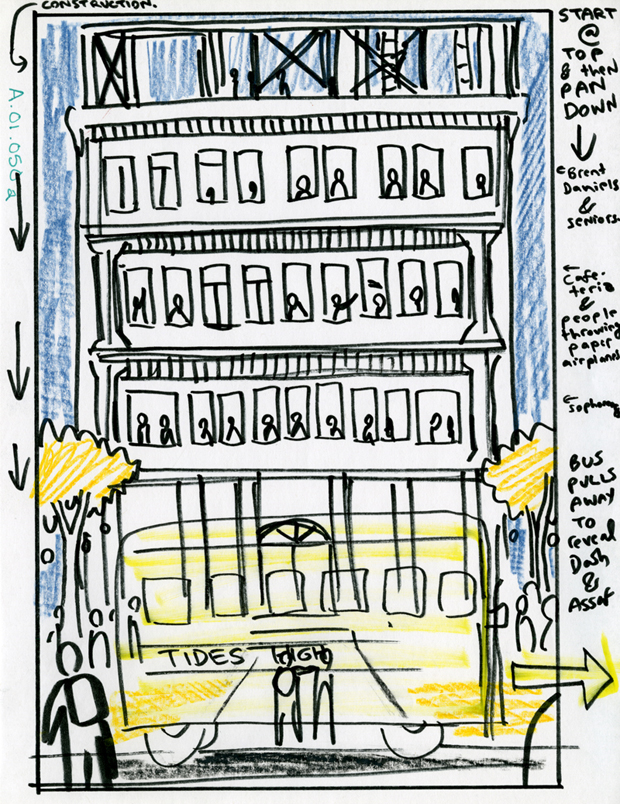 CONSTRUCTION.
START
@
TOP
& then
PAN
DOWN
Brent
Daniels
&
seniors
Cafe-
teria
&
people
throwing
paper
airplanes
BUS
PULLS
AWAY
TO
reveal
Dash
&
Assaf
A.01.056a
TIDES HIGH